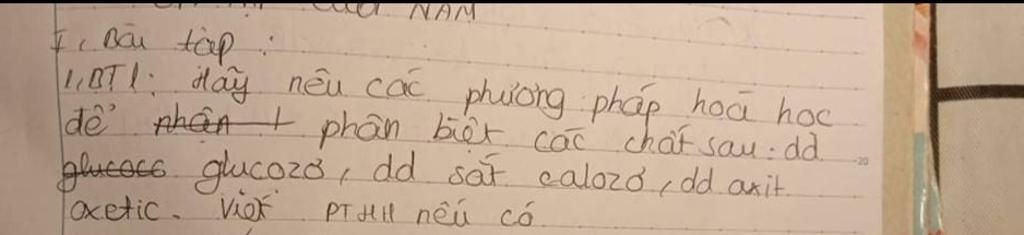 CUỐI NĂM
I, Bài tập :
1, BT1: Hãy nêu các phương pháp hoá học
để phân t phân biệt các chất sau: dd
glucoco glucozơ, dd sắt calozơ, dd axit
axetic. Viết PTHH nếu có